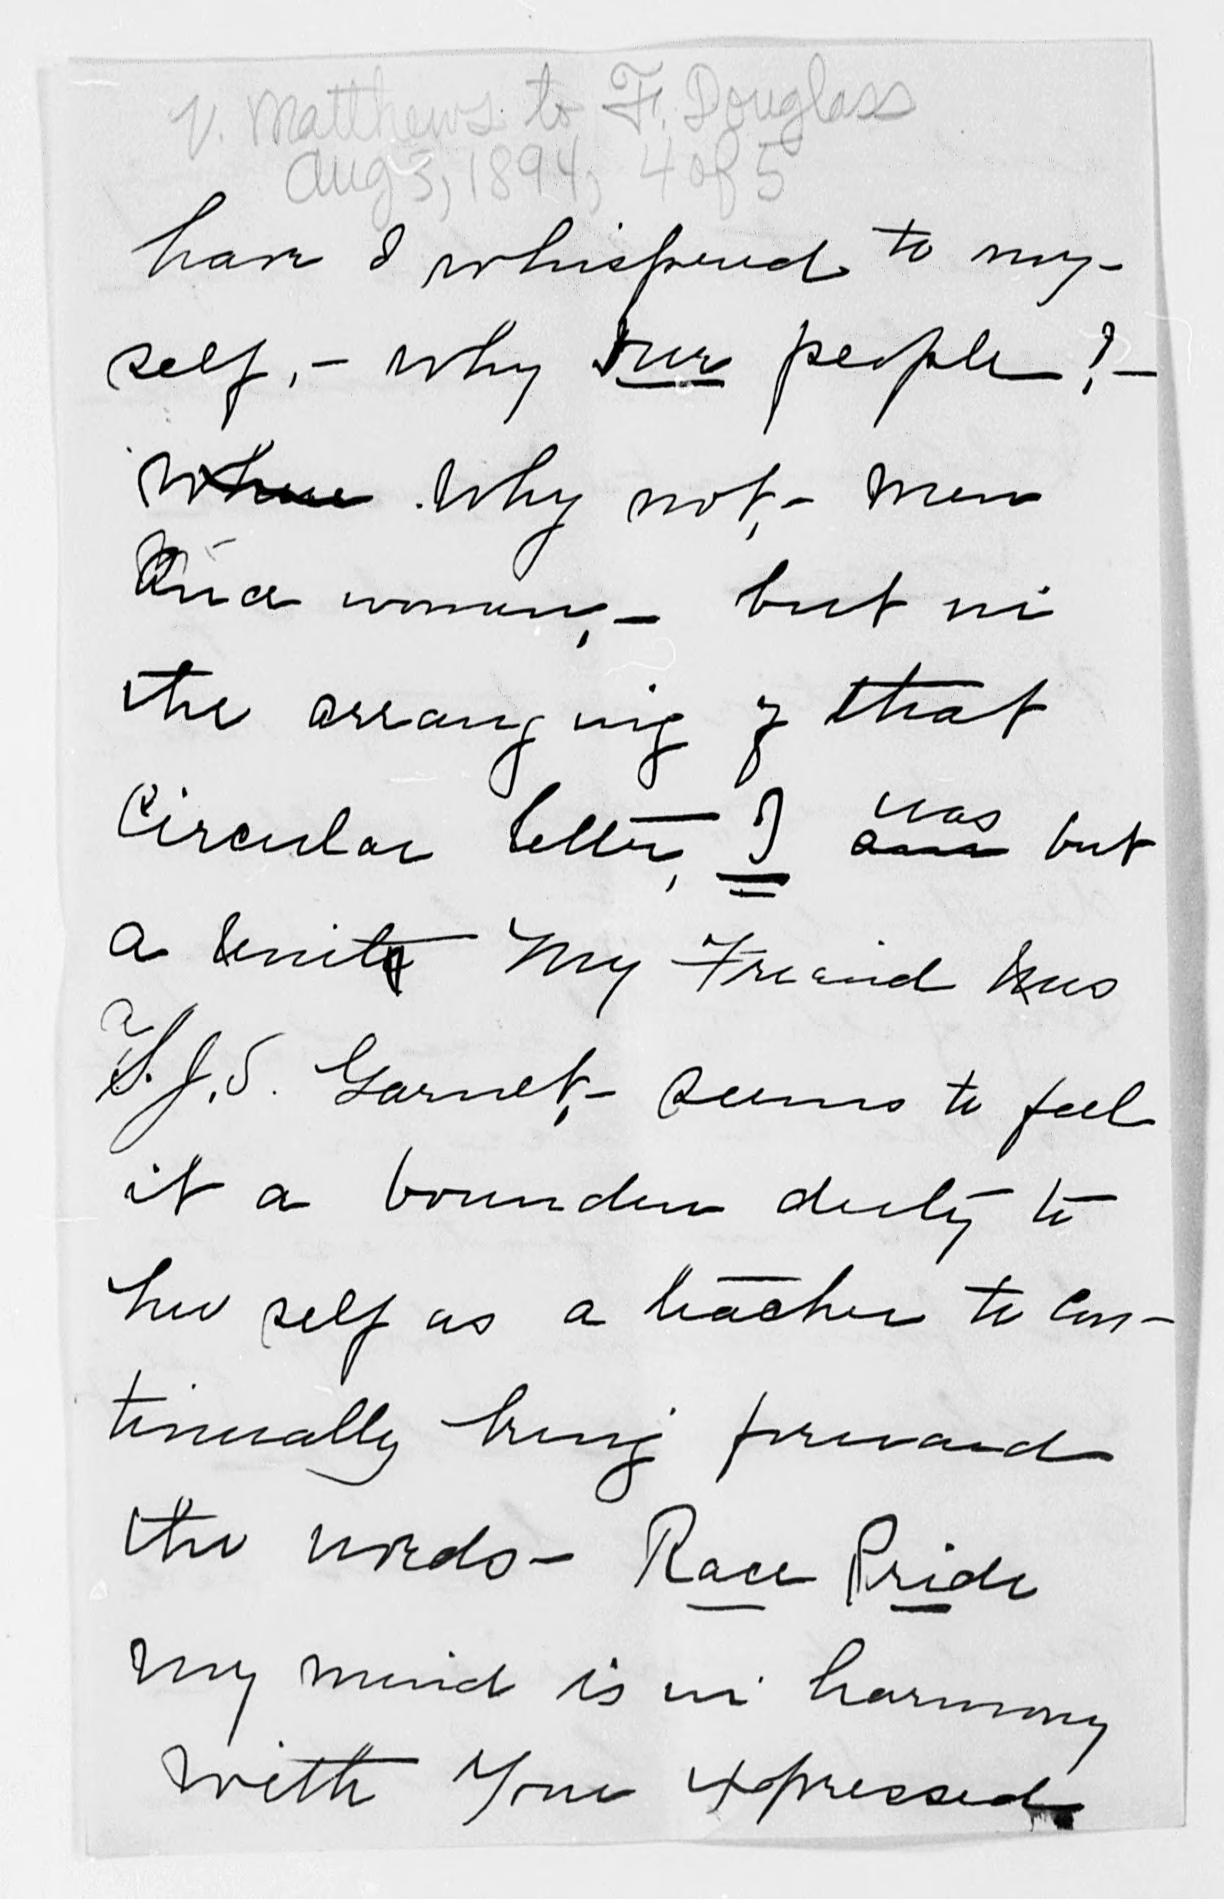 V. Matthews to F. Douglass
Aug 3, 1894, 4 of 5
have I whispered to my-
self, - why our people? -
where why not, - men
and women, - but in
the arranging of that
circular letter, I am was but
a unit My Friend Mrs
S. J. S. Garnet, - seems to feel
it a bounden duty to
her self as a teacher to con-
tinually bring forward
the words - Race Pride
my mind is in harmony
with your expressed